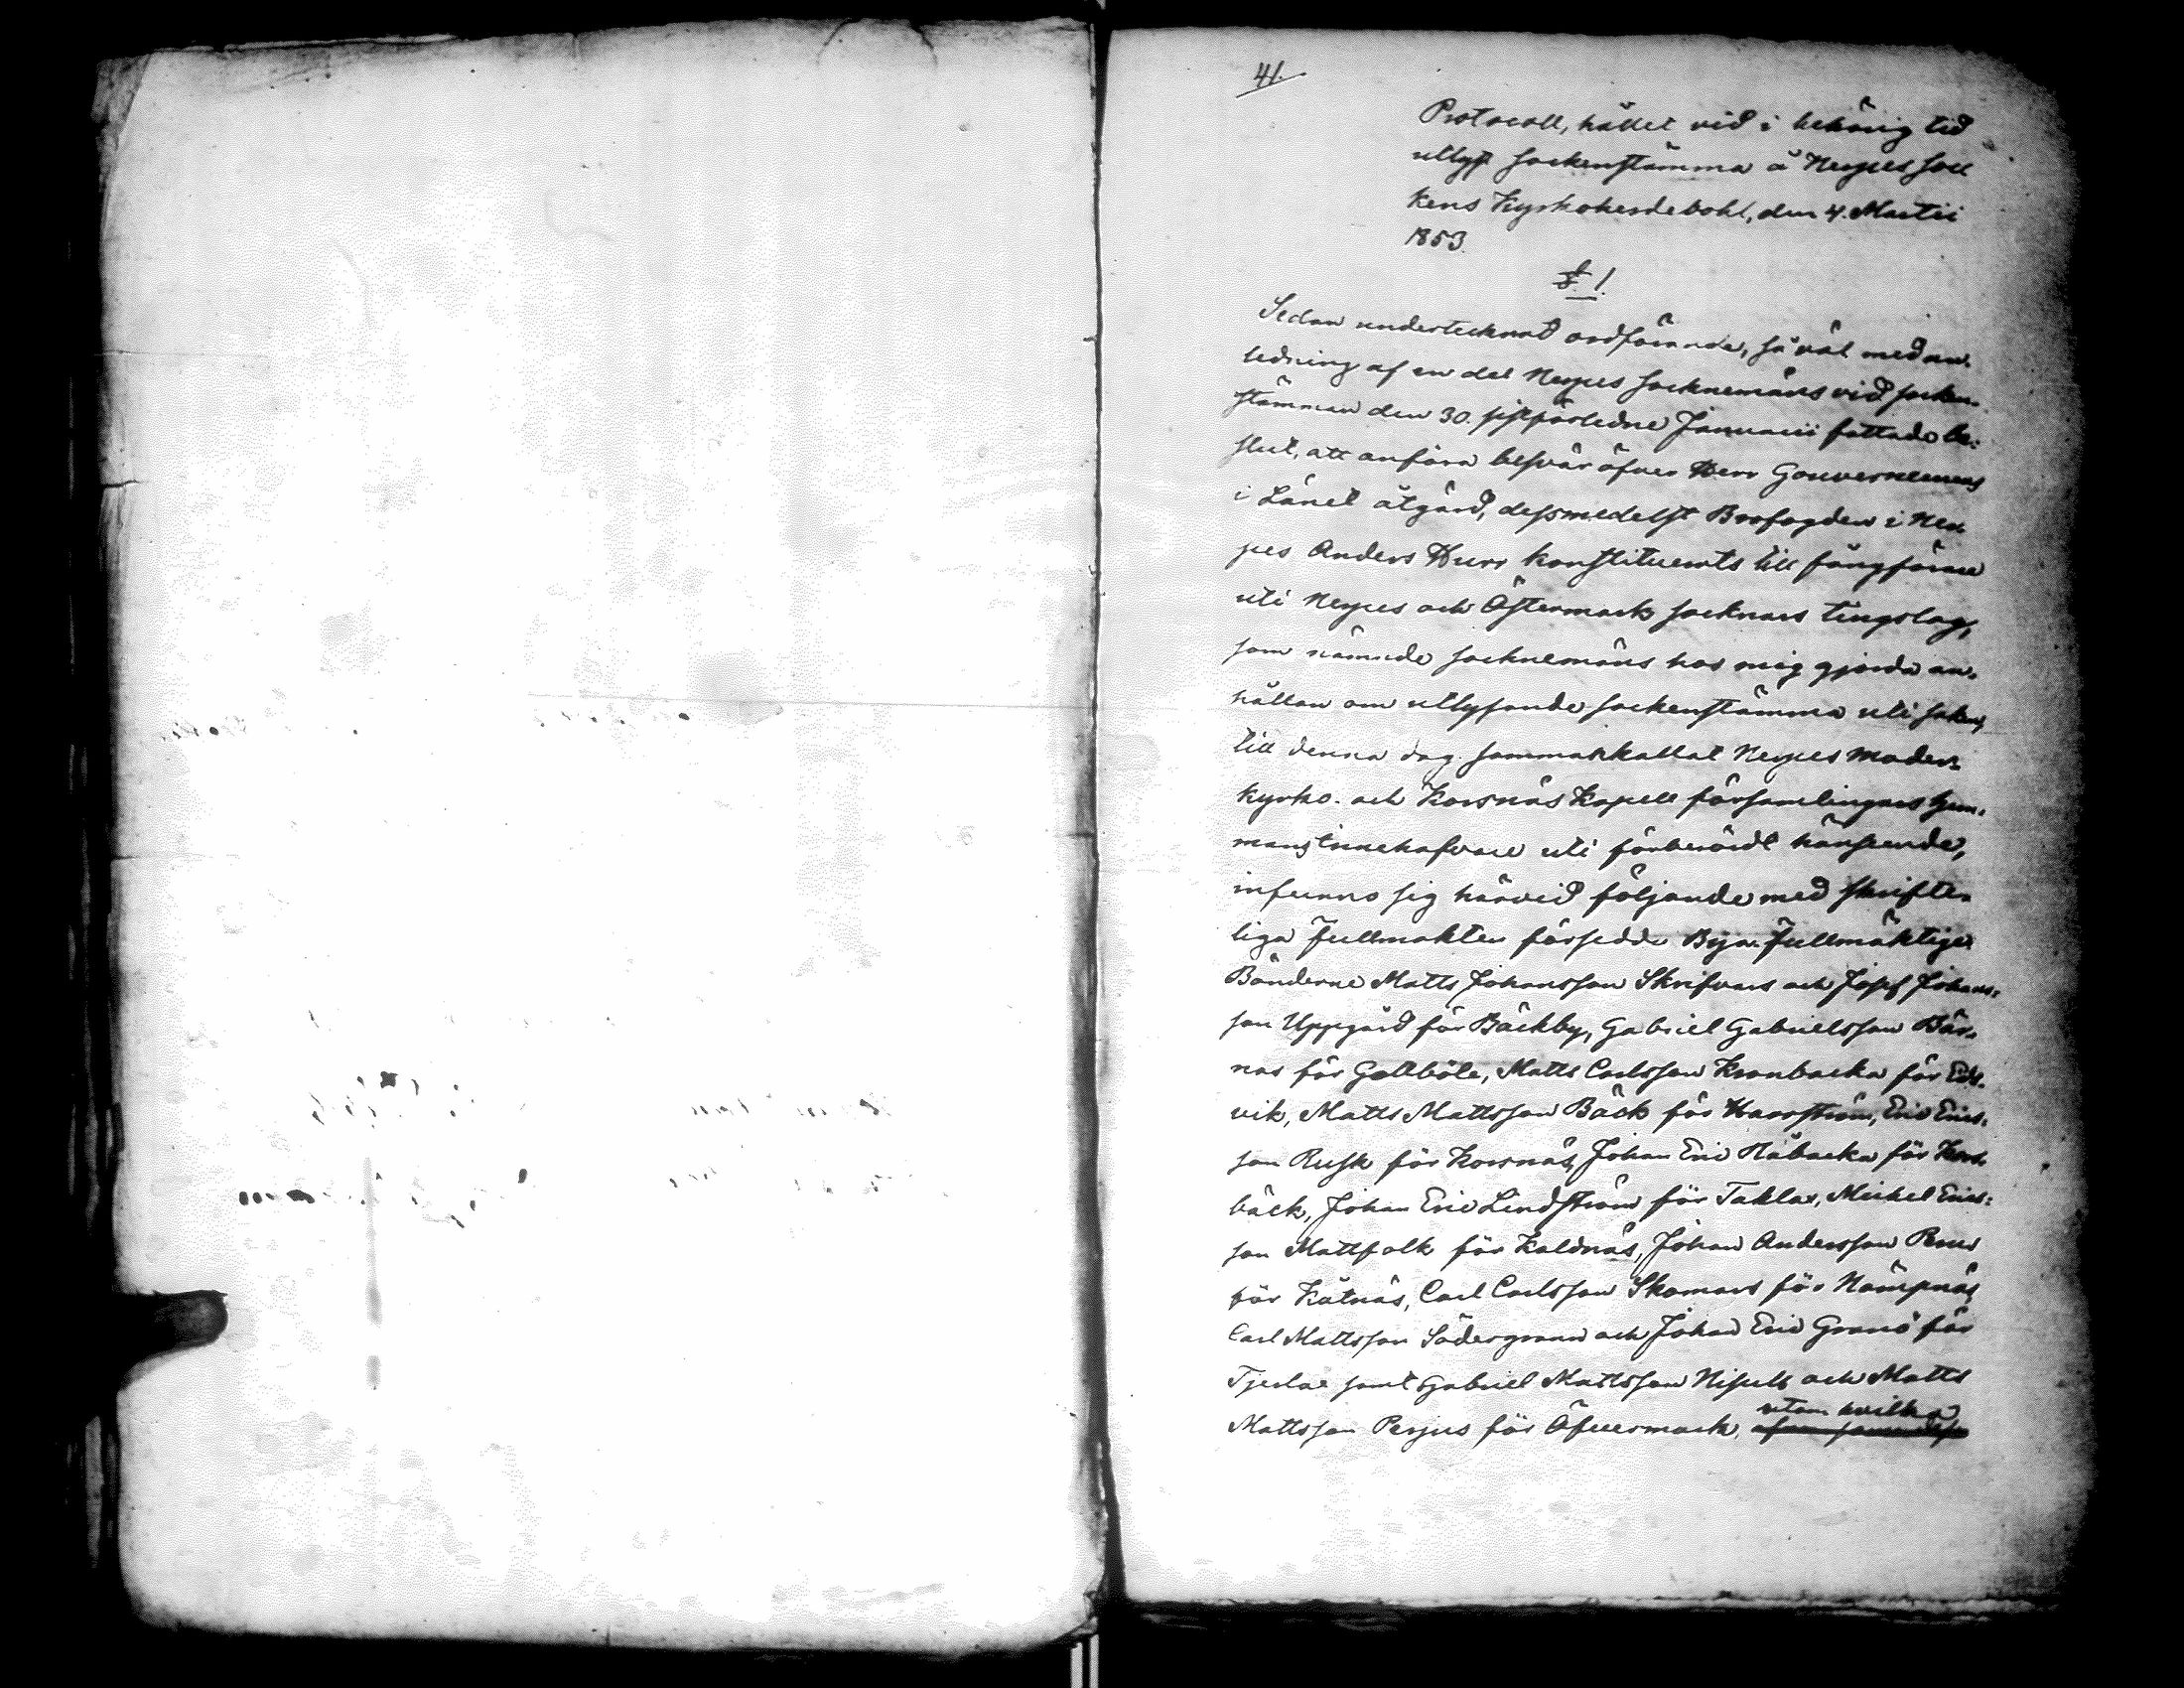 41.
Protocoll, hållet vid i behörig tid
utlyst sockenstämma å Nerpes soc
kens Kyrkoherdebohl, den 4. Martii
1853.
§. 1.
Sedan undertecknad ordförande, så väl med an-
ledning af en del Nerpes socknemäns vid socken-
stämman den 30. sistförledne Januarii fattade be-
slut, att anföra besvär öfver Herr Gouverneurens
i Länet åtgärd, dessmedelst Brofogden i Ner-
pes Anders Hurr konstituerats till fångförare
uti Nerpes och Östermark socknars tingslag,
som nämnde socknemäns hos mig gjorda an-
hållan om utlysande sockenstämma uti saken,
till denna dag sammankallat Nerpes Moder-
kyrko- och Korsnäs Kapell församlingars hem-
mans innehafvare uti förberörde hänseende,
infunno sig härvid följande med skrift-
liga fullmakter försedde Bya-fullmäktige
Bönderne Matts Johansson Skrifvars och Josef Johans-
son Uppgård för Bäckby, Gabriel Gabrielsson Bär-
nas för Gottböle, Matts Carlsson Kronbacka för Eds-
vik, Matts Mattsson Bäck för Harrström, Eric Erics-
son Rusk för Korsnäs, Johan Eric Håbacka för Kors-
bäck, Johan Eric Lindström för Taklax, Mickel Erics-
son Mattfolk för Kaldnäs, Johan Andersson
för Kåtnäs, Carl Carlsson Skomars för Nämpnäs
Carl Mattsson Södergrann och Johan Eric Granö för
Tjerlax samt Gabriel Mattsson Nisuls och Matts
Mattsson Perjus för Öfvermark, utom hvilka